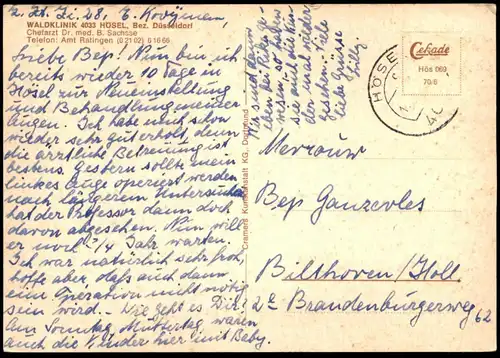 z. Zt. Zi. 28,
WALDKLINIK 4033 HÖSEL, Bez. Düsseldorf
Chefarzt Dr. med. B. Sachsse
Telefon: Amt Ratingen (0 21 02) 6 16 66
Liebe Bep! Nun bin ich
bereits wieder 10 Tage in
Hösel zur Neueinstellung
und Behandlung meiner
Augen. Ich habe mich schon
wieder sehr gut erholt, denn
die ärztliche Betreuung ist
bestens. Gestern sollte mein
linkes Auge operiert werden
nach längerem Untersuchen
hat der Professor dann doch
davon abgesehen. Nun will
er noch 1/4 Jahr warten.
Ich war natürlich sehr froh,
hoffe aber, daß auch dann
eine Operation nicht nötig
sein wird. — Wie geht es Dir?
Am Sonntag, Muttertag waren
auch die Kinder hier mit Baby.
Wir sind dann
eben bei
so haben
sie auch
der
gesehen. Viele
liebe Grüsse
Cramers Kunstanstalt KG., Dortmund
HÖSEL
Cekade
Hös 069
70/6
Mevrouw
Bep Ganzevles
Bilthoven/Holl.
2e Brandenburgerweg 62